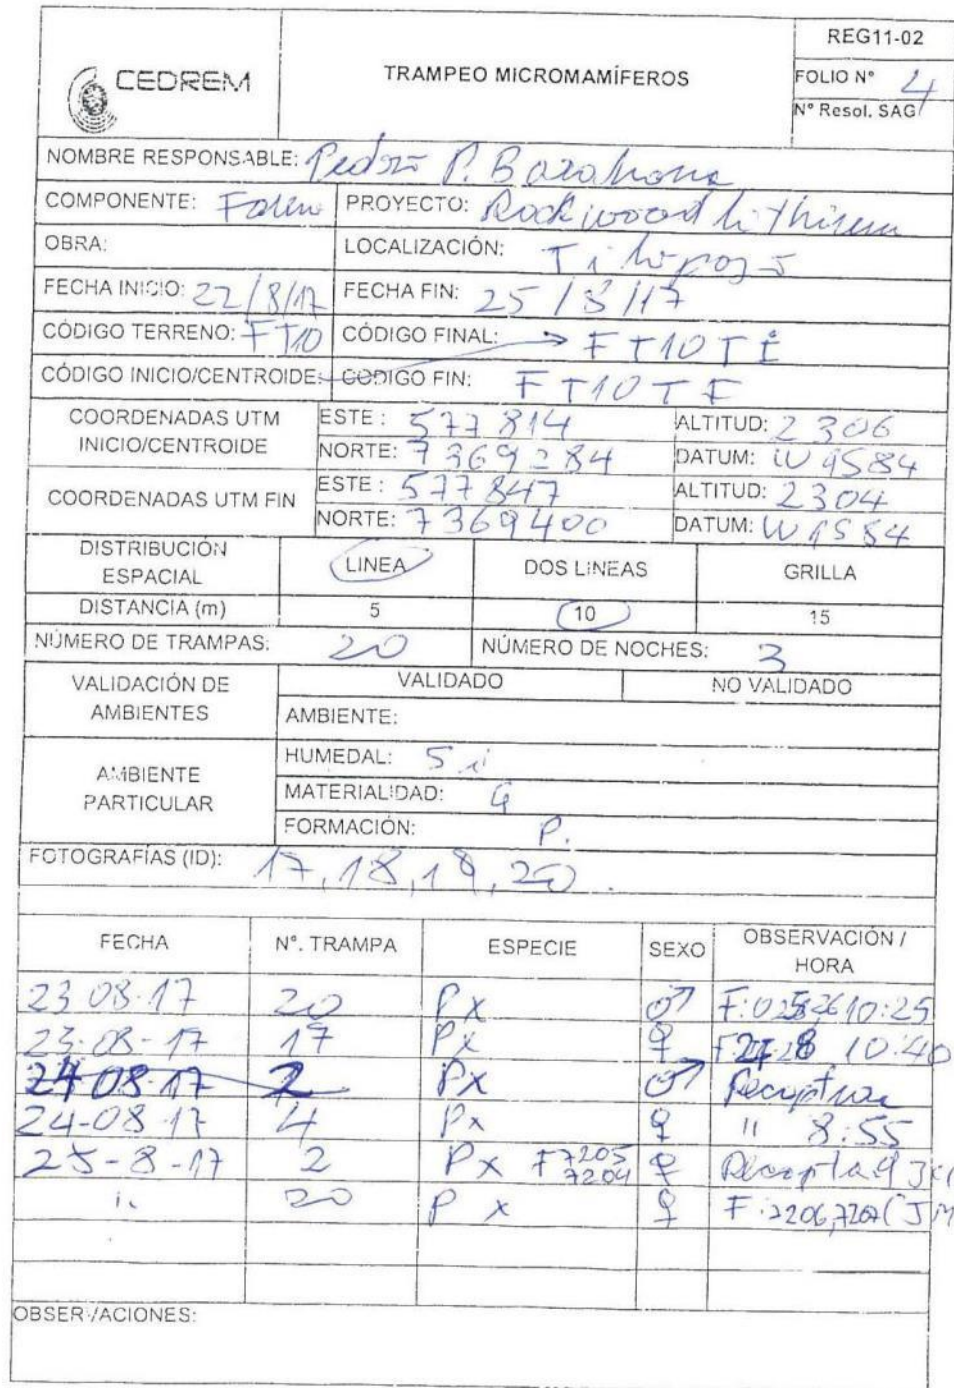 REG11-02
CEDREM
TRAMPEO MICROMAMÍFEROS
FOLIO N° 4
N° Resol. SAG
NOMBRE RESPONSABLE: Pedro P. Barahona
COMPONENTE: PROYECTO: Rockwood Lithium
OBRA: LOCALIZACIÓN: Tilopozo
FECHA INICIO: 22/8/17 FECHA FIN: 25/8/17
CÓDIGO TERRENO: FT10 CÓDIGO FINAL: → FT10TI
CÓDIGO INICIO/CENTROIDE: CODIGO FIN: FT10TF
COORDENADAS UTM INICIO/CENTROIDE ESTE : 577814 ALTITUD: 2306
NORTE: 7369284 DATUM: WGS84
COORDENADAS UTM FIN ESTE : 577847 ALTITUD: 2304
NORTE: 7369400 DATUM: WGS84
DISTRIBUCIÓN ESPACIAL LINEA DOS LINEAS GRILLA
DISTANCIA (m) 5 10 15
NÚMERO DE TRAMPAS: 20 NÚMERO DE NOCHES: 3
VALIDACIÓN DE AMBIENTES VALIDADO NO VALIDADO
AMBIENTE:
AMBIENTE PARTICULAR HUMEDAL: Si
MATERIALIDAD: G
FORMACIÓN: P.
FOTOGRAFÍAS (ID): 17, 18, 19, 20.
FECHA N°. TRAMPA ESPECIE SEXO OBSERVACIÓN / HORA
23.08.17 20 Px ♂ 10:25
23-08-17 17 Px ♀ 10:40
24-08-17 2 Px ♂ Recaptura
24-08-17 4 Px ♀ " 8:55
25-8-17 2 Px F7205 7204 ♀
" 20 Px ♀ F:7206,7207
OBSERVACIONES: